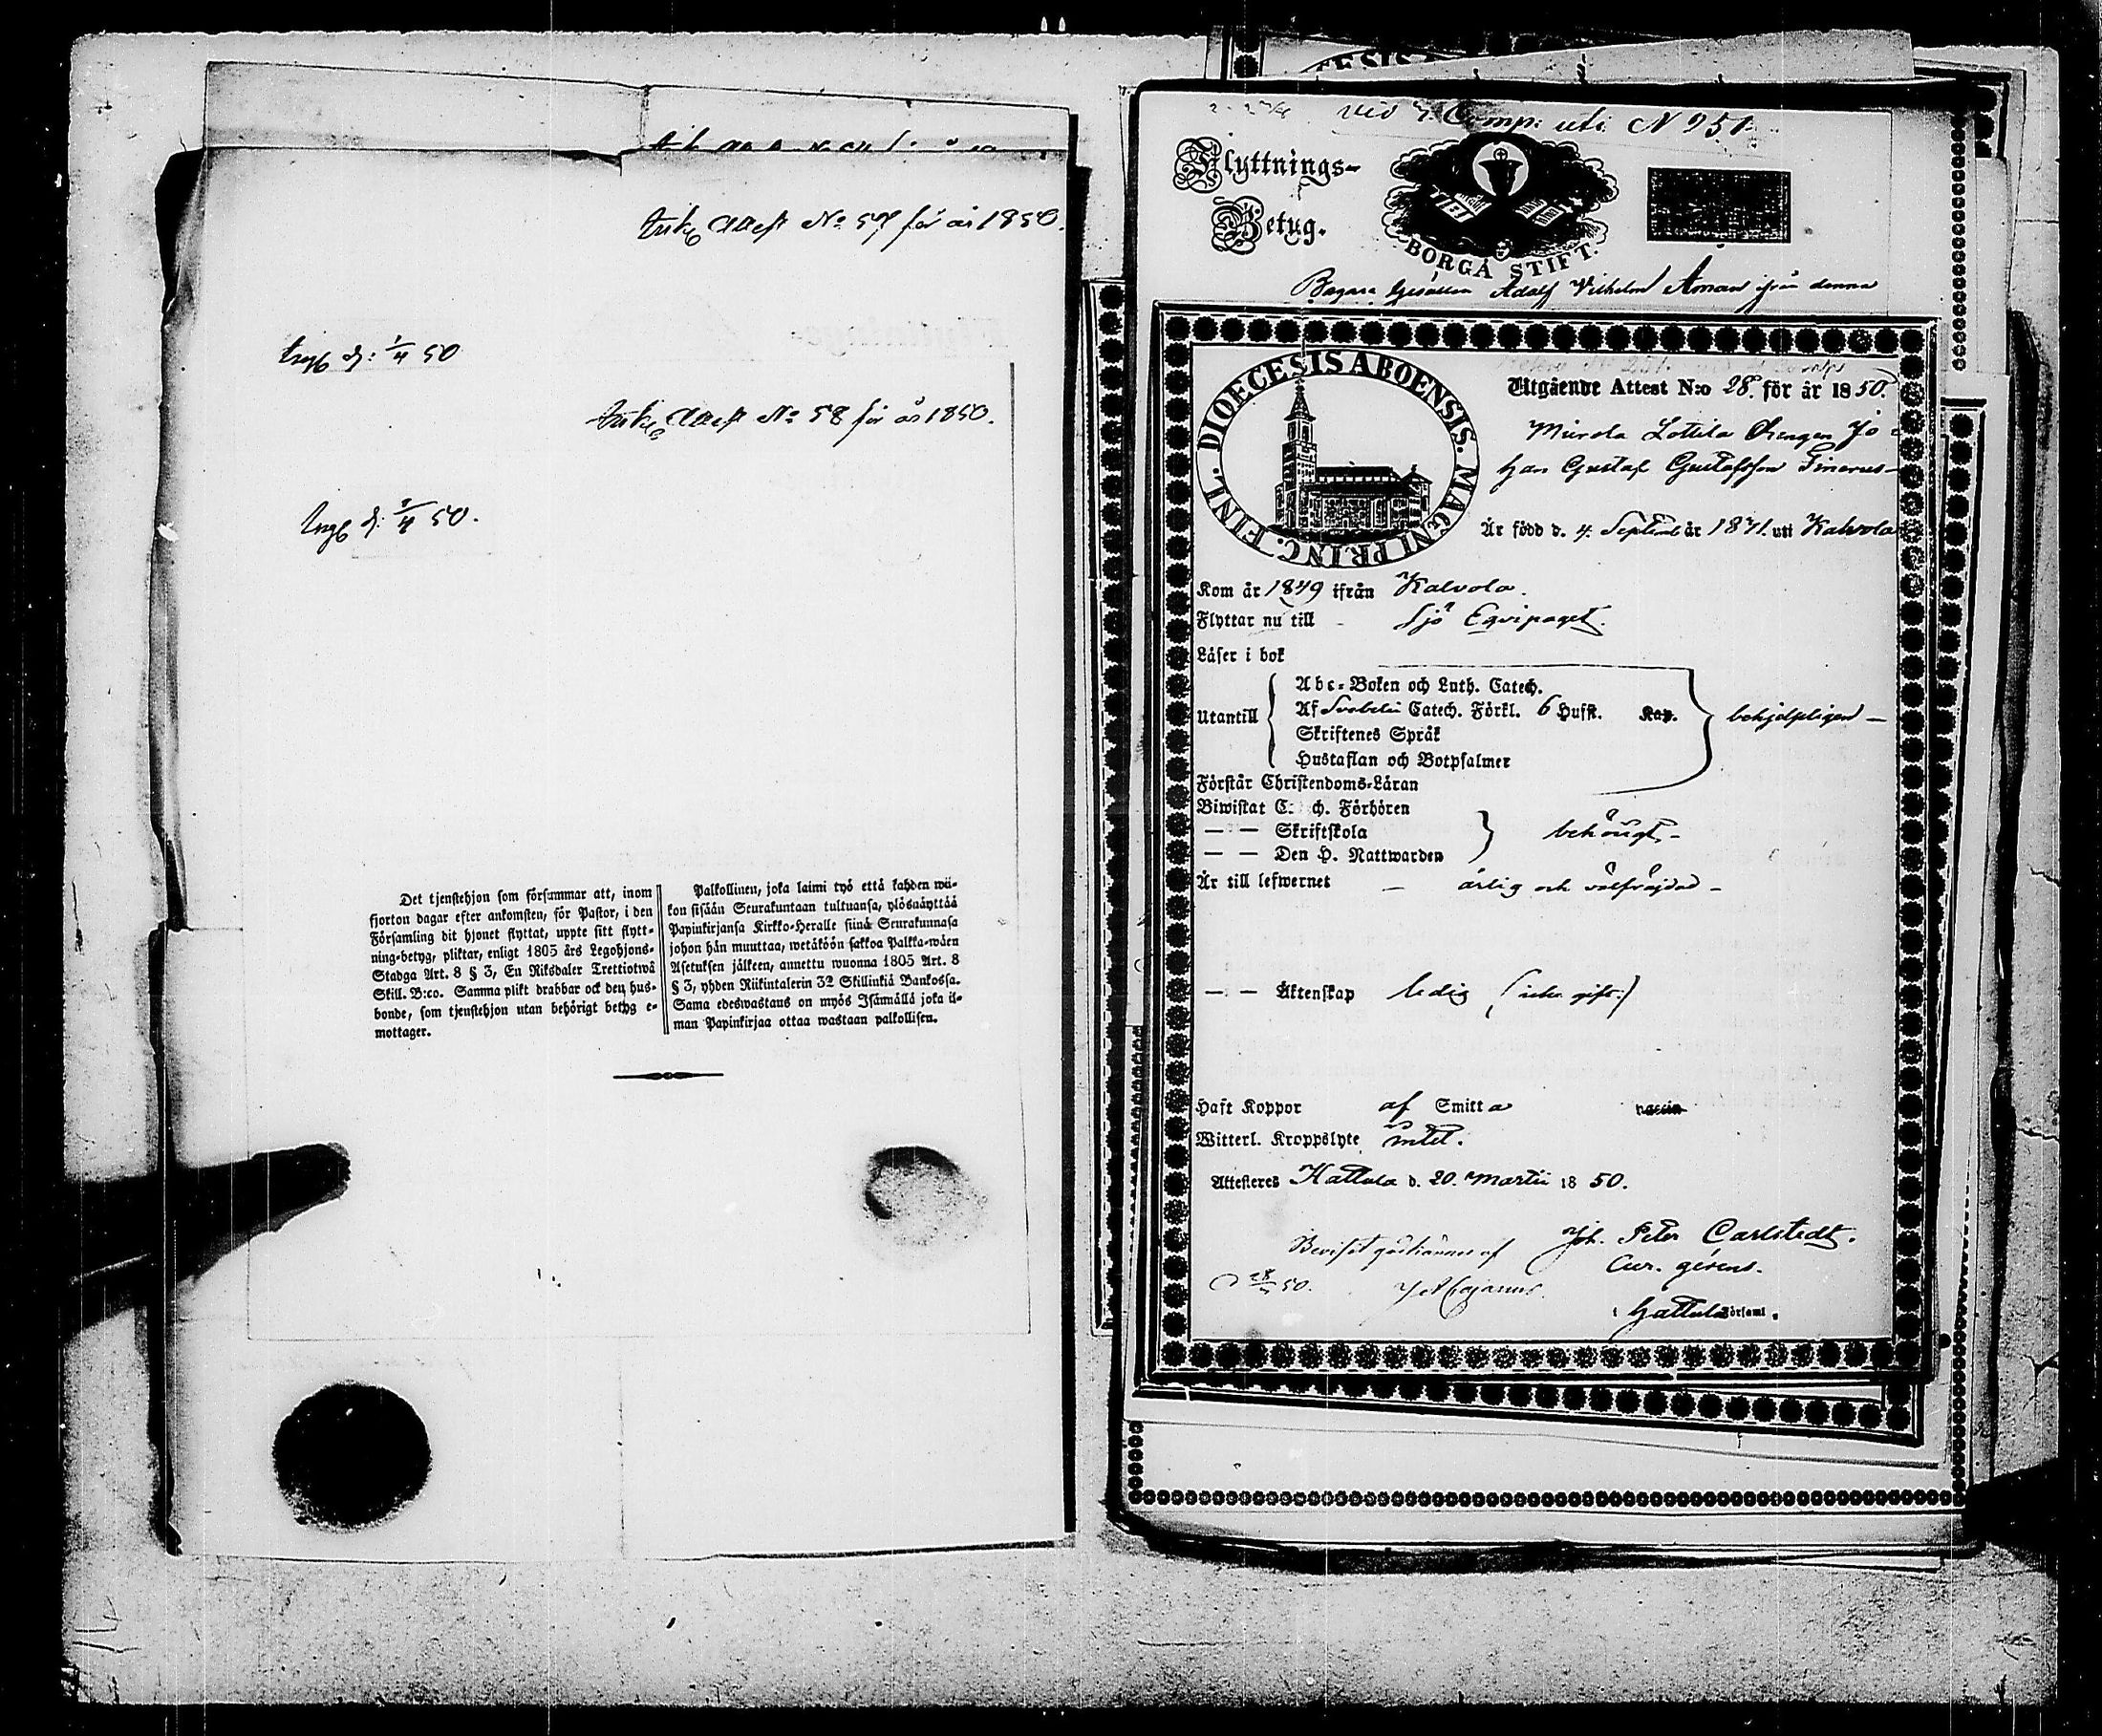 Ank. Attest No 57 för år 1850.
d: 1/4 50
Ank. Attest No 58 för år 1850.
d: 1/4 50.
Det tjenstehjon som försummar att, inom
fjorton dagar efter ankomsten, för Pastor, i den
Församling dit hjonet flyttat, uppte sitt flytt-
ning-betyg, pliktar, enligt 1805 års Legohjons-
Stadga Art. 8 § 3, En Riksdaler Trettiotwå
Skill. B:co. Samma plikt drabbar ock den hus-
bonde, som tjenstehjon utan behörigt betyg e-
mottager.
Palkollinen, joka laimi työ että kahden wii-
kon sisään Seurakuntaan tultuansa, ylösnäyttää
Papinkirjansa Kirkko-Heralle siinä Seurakunnasa
johon hän muuttaa, wetäköön sakkoa Palkka-wäen
Asetuksen jälkeen, annettu wuonna 1805 Art. 8
§ 3, yhden Riikintalerin 32 Skillinkiä Bankossa.
Sama edeswastaus on myös Isännällä joka il-
man Papinkirjaa ottaa wastaan palkollisen.
vid 7 Comp: uti N 251
Flyttnings-
Betyg.
BORGÅ STIFT.
Bagare Gesällen Adolf Vilhelm Åman ifrån denna
DIOECESIS ABOENSIS. MAGNI PRINC. FINL.
Utgående Attest N:o 28. för år 1850.
Mierola Lottila Drengen Jo-
han Gustaf Gustafsson
Är född d. 4. Septemb år uti Kalvola
Kom år 1849 ifrån Kalvola.
Flyttar nu till Sjö Eqvipaget.
Läser i bok
Abc-Boken och Luth. Catech.
Utantill Af Svebelii Catech. Förkl. 6 Hufst. Kap. behjelpligen –
Skriftenes Språk
Hustaflan och Botpsalmer
Förstår Christendoms-Läran
Biwistat C ch. Förhören
— — Skriftskola behörigt –
— — Den H. Nattwarden
Är till lefwernet – ärlig och välfräjdad –
— — Äktenskap ledig (icke gift.)
Haft Koppor af Smitta vaccin
Witterl. Kroppslyte intet.
Attesteres Hattula d. 20. Martii 18 50.
Joh. Peter Carlstedt.
Beviset godkännes af
Cur. gerens.
50. Cajanus.
i Hattula Församl.